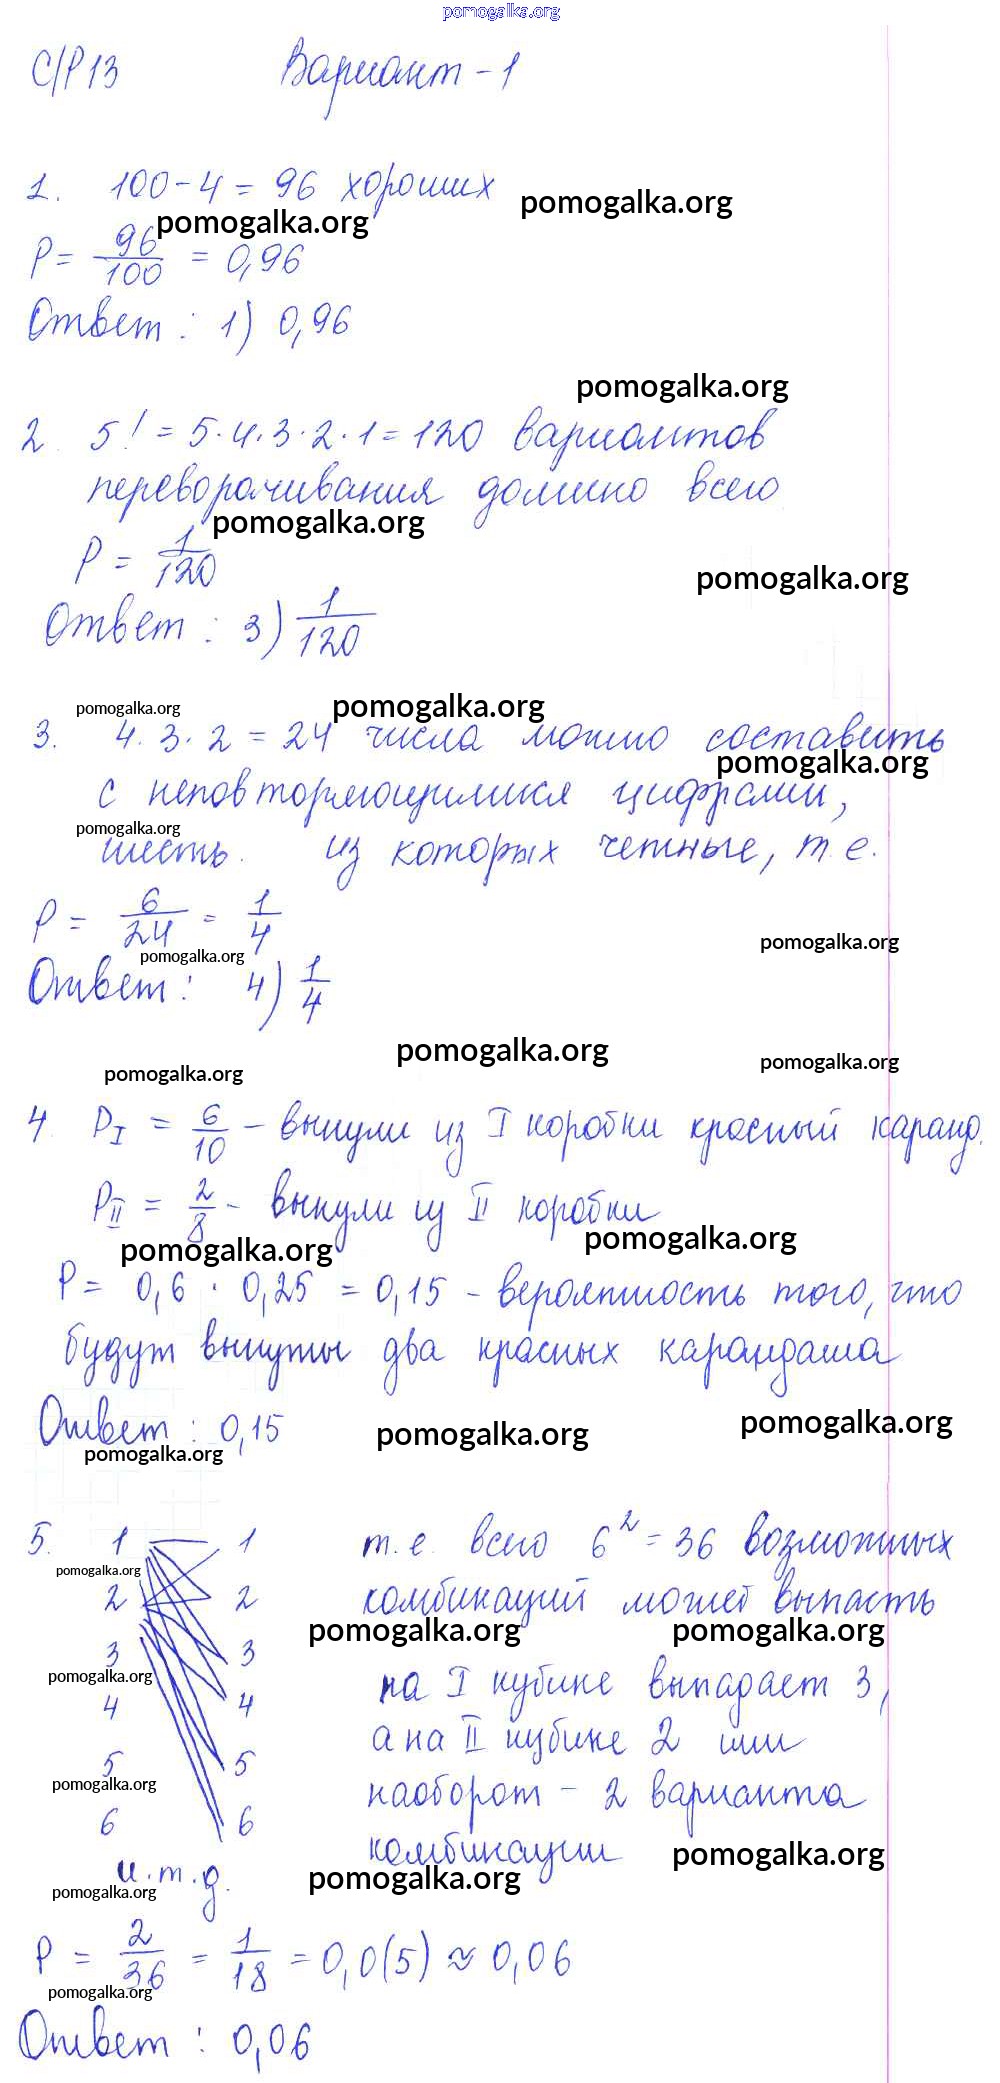 pomogalka.org
С/Р 13 Вариант - 1
1. 100 - 4 = 96 хороших
pomogalka.org
pomogalka.org
P = 96/100 = 0,96
Ответ: 1) 0,96
pomogalka.org
2. 5! = 5·4·3·2·1 = 120 вариантов
переворачивания домино всего
pomogalka.org
P = 1/120
pomogalka.org
Ответ: 3) 1/120
pomogalka.org pomogalka.org
3. 4·3·2 = 24 числа можно составить
pomogalka.org
с неповторяющимися цифрами,
pomogalka.org
шесть. из которых четные, т.е.
P = 6/24 = 1/4
pomogalka.org pomogalka.org
Ответ: 4) 1/4
pomogalka.org
pomogalka.org pomogalka.org
4. P_I = 6/10 - вынули из I коробки красный каранд.
P_II = 2/8 - вынули из II коробки
pomogalka.org pomogalka.org
P = 0,6 · 0,25 = 0,15 - вероятность того, что
будут вынуты два красных карандаша
Ответ: 0,15
pomogalka.org pomogalka.org
pomogalka.org
5. 1 1 т.е. всего 6² = 36 возможных
pomogalka.org
2 2 комбинаций может выпасть
pomogalka.org pomogalka.org
3 3 на I кубике выпадает 3,
pomogalka.org
4 4 а на II кубике 2 или
5 5 наоборот - 2 варианта
pomogalka.org
6 6 комбинации
pomogalka.org
и.т.д.
pomogalka.org pomogalka.org
P = 2/36 = 1/18 = 0,0(5) ≈ 0,06
pomogalka.org
Ответ: 0,06